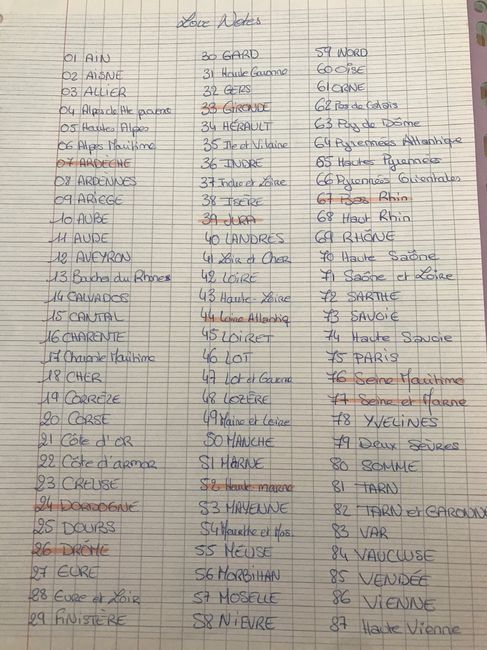 Love Notes
01 AIN
02 AISNE
03 ALLIER
04 Alpes de Hte provence
05 Hautes Alpes
06 Alpes Maritime
07 ARDECHE
08 ARDENNES
09 ARIEGE
10 AUBE
11 AUDE
12 AVEYRON
13 Bouches du Rhones
14 CALVADOS
15 CANTAL
16 CHARENTE
17 Charente Maritime
18 CHER
19 CORRÈZE
20 CORSE
21 Côte d'OR
22 Côte d'armor
23 CREUSE
24 DORDOGNE
25 DOUBS
26 DRÔME
27 EURE
28 Eure et Loir
29 FINISTÈRE
30 GARD
31 Haute Garonne
32 GERS
33 GIRONDE
34 HÉRAULT
35 Ile et Vilaine
36 INDRE
37 Indre et Loire
38 ISÈRE
39 JURA
40 LANDRES
41 Loir et Cher
42 LOIRE
43 Haute-Loire
44 Loire Atlantiq
45 LOIRET
46 LOT
47 Lot et Garonne
48 LOZÈRE
49 Maine et Loire
50 MANCHE
51 MARNE
52 Haute-marne
53 MAYENNE
54 Meurthe et Mos.
55 MEUSE
56 MORBIHAN
57 MOSELLE
58 NIEVRE
59 NORD
60 OISE
61 ORNE
62 Pas de Calais
63 Puy de Dôme
64 Pyrennées Atlantique
65 Hautes Pyrennées
66 Pyrennées Orientales
67 Bas Rhin
68 Haut Rhin
69 RHÔNE
70 Haute Saône
71 Saône et Loire
72 SARTHE
73 SAVOIE
74 Haute Savoie
75 PARIS
76 Seine Maritime
77 Seine et Marne
78 YVELINES
79 Deux Sèvres
80 SOMME
81 TARN
82 TARN et GARONNE
83 VAR
84 VAUCLUSE
85 VENDÉE
86 VIENNE
87 Haute Vienne